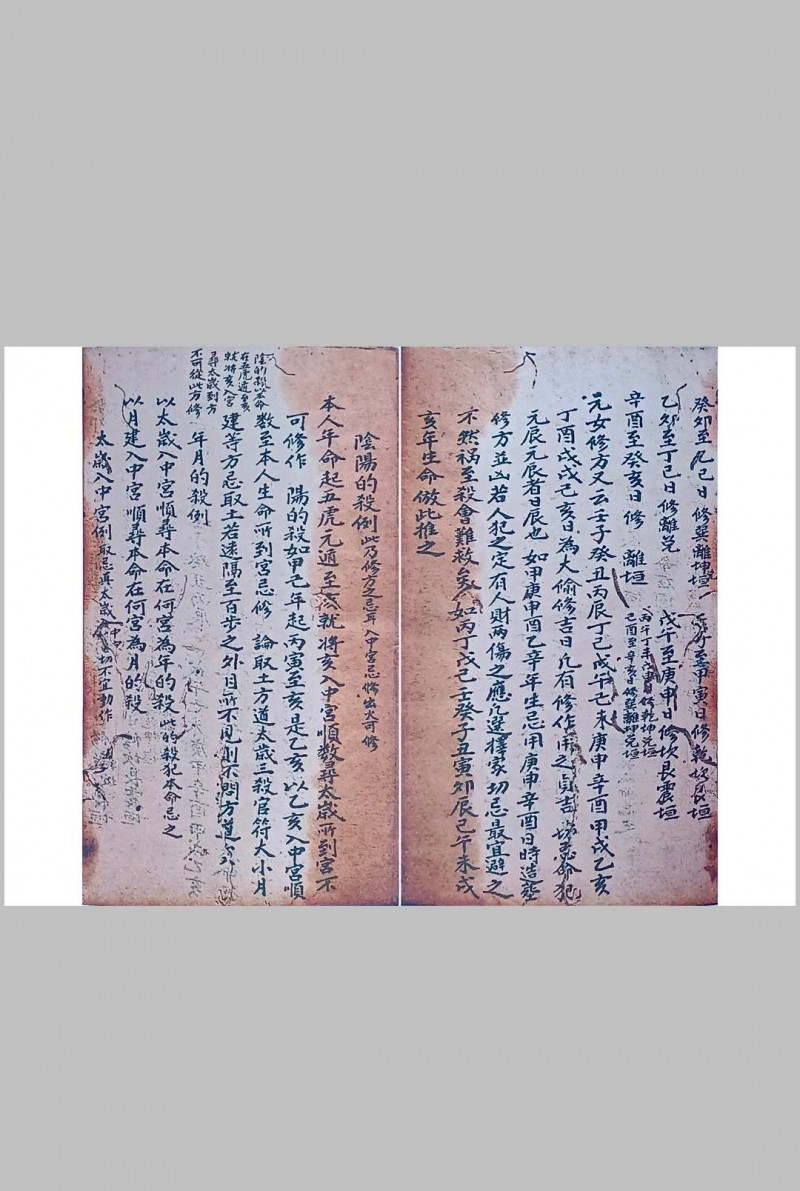 癸卯至九己日修巽離坤垣
至甲寅日修乾坎艮垣
乙卯至丁己日修離兑
戊午至庚申日修坎艮震垣
辛酉至癸亥日修離垣
丙午丁未戊申日修乾坤兑垣
己酉至辛亥日修巽離坤兑垣
元女修方又云壬子癸丑丙辰丁巳戊午己未庚申辛酉甲戌乙亥
丁酉戊戌己亥日為大偷修吉日凡有修作用之貞吉切忌命犯
元辰元辰者日辰也如甲庚申酉乙辛年生忌用庚申辛酉日時造塟
修方並凶若人犯之定有人財兩傷之應凡選擇家切忌最宜避之
不然禍至殺會難救矣如丙丁戊己壬癸子丑寅卯辰巳午未戌
亥年生命倣此推之
陰陽的殺例此乃修方之忌耳入中宮忌修出火可修
本人年命起五虎元遁至亥就將亥入中宮順數尋太歲所到宮不
可修作 陽的殺如甲己年起丙寅至亥是乙亥以乙亥入中宮順
陰的殺以本命
在五虎遁至亥
就將亥入宮
尋太歲到方
不可從此方修
數至本人生命所到宮忌修 論取土方道太歲三殺官符大小月
建等方忌取土若遠隔至百步之外目所不見則不問方道
年月的殺例
以太歲入中宮順尋本命在何宮為年的殺此的殺犯本命忌之
以月建入中宮順尋本命在何宮為月的殺
太歲入中宮例取忌與太歲入中宮切不宜動作